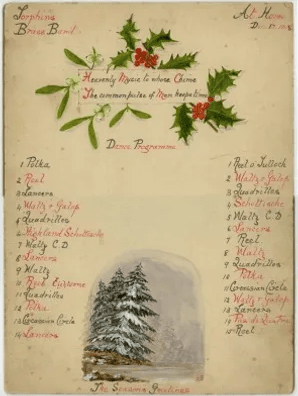 Torphins
Brass Band
At Home
Heavenly Music to whose Chime
The common pulse of Man keeps time
Dance Programme
1 Polka
2 Reel
3 Lancers
4 Waltz & Galop
5 Quadrilles
6 Highland Schottische
7 Waltz C.D
8 Lancers
9 Waltz
10 Reel
11 Quadrilles
12 Polka
13 Circassian Circle
14 Lancers
1 Reel o' Tulloch
2 Waltz & Galop
3 Quadrilles
4 Schottische
5 Waltz C.D
6 Lancers
7 Reel
8 Waltz
9 Quadrilles
10 Polka
11 Circassian Circle
12 Waltz & Galop
13 Lancers
14 Pas de Quatre
15 Reel
The Seasons Greetings